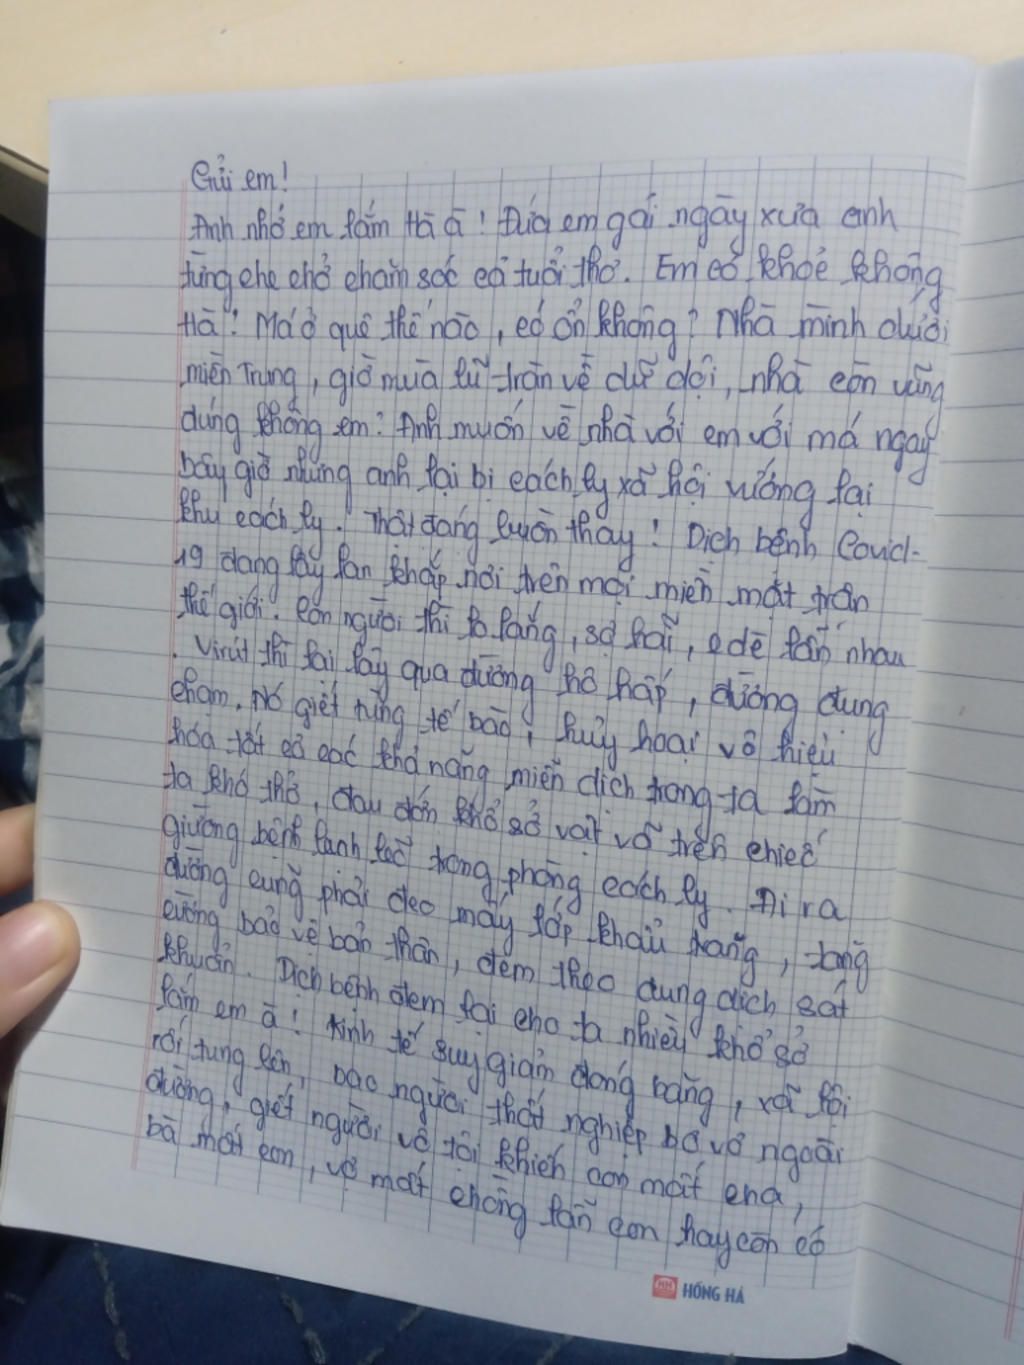 Gửi em!
Anh nhớ em lắm Hà à! Đứa em gái ngày xưa anh
từng che chở chăm sóc cả tuổi thơ. Em có khoẻ không
Hà? Má ở quê thế nào, có ổn không? Nhà mình dưới
miền Trung, giờ mùa lũ tràn về dữ dội, nhà còn vững
dúng không em? Anh muốn về nhà với em với má ngay
bây giờ nhưng anh lại bị cách ly xã hội vướng tại
khu cách ly. Thật đáng buồn thay! Dịch bệnh Covid-
19 đang lây lan khắp nơi trên mọi miền mặt trận
thế giới. Con người thì lo lắng, sợ hãi, e dè lẫn nhau
. Virút thì lại lây qua đường hô hấp, đường dung
chạm. Nó giết từng tế bào, hủy hoại vô hiệu
hóa tất cả các khả năng miễn dịch trong ta làm
ta khó thở, đau đớn khổ sở vật vã trên chiếc
giường bệnh lạnh lẽo trong phòng cách ly. Đi ra
đường cũng phải đeo mấy lớp khẩu trang, tăng
cường bảo vệ bản thân, đem theo dung dịch sát
khuẩn. Dịch bệnh đem lại cho ta nhiều khổ sở
lắm em à! Kinh tế suy giảm đóng băng, xã hội
rối tung lên, bao người thất nghiệp bơ vơ ngoài
đường, giết người vô tội khiến con mất cha,
bà mất con, vợ mất chồng lẫn con hay còn có
HỒNG HÀ